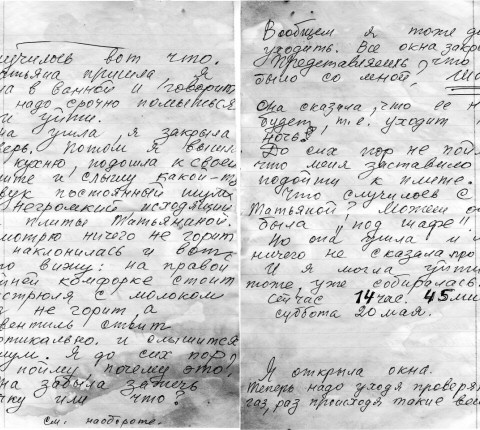 лучилось вот что.
атьяна пришла, я
ла в ванной и говорит
надо срочно помыться
и уйти.
на ушла, я закрыла
верь. Потом я вышл
кухню подошла к своей
лите и слышу какой-то
вук постоянный шума
Негромкий исходящий
плиты Татьяниной.
мотрю ничего не горит
наклонилась и вот
то вижу: на правой
ней комфорке стоит
стрюля с молоком
не горит а
вентиль стоит
ртикально. и слышится
шум. Я до сих пор
пойму почему это
на забыла зажечь
чку или что?
см. наоборот.
Вообщем я тоже до
уходить. Все окна закры
Представляешь, что
было со мной,
Она сказала, что ее н
будет, т.е. уходит
ночь?!
До сих пор не пой
что меня заставило
подойти к плите.
Что случилось с
Татьяной? Может о
была "под шафе"
Но она ушла и
ничего не сказала про
И я могла уйти
тоже, уже собиралась.
Сейчас 14 час. 45 ми
суббота 20 мая.
Я открыла окна.
Теперь надо уходя проверят
газ, раз происходя такие вещ